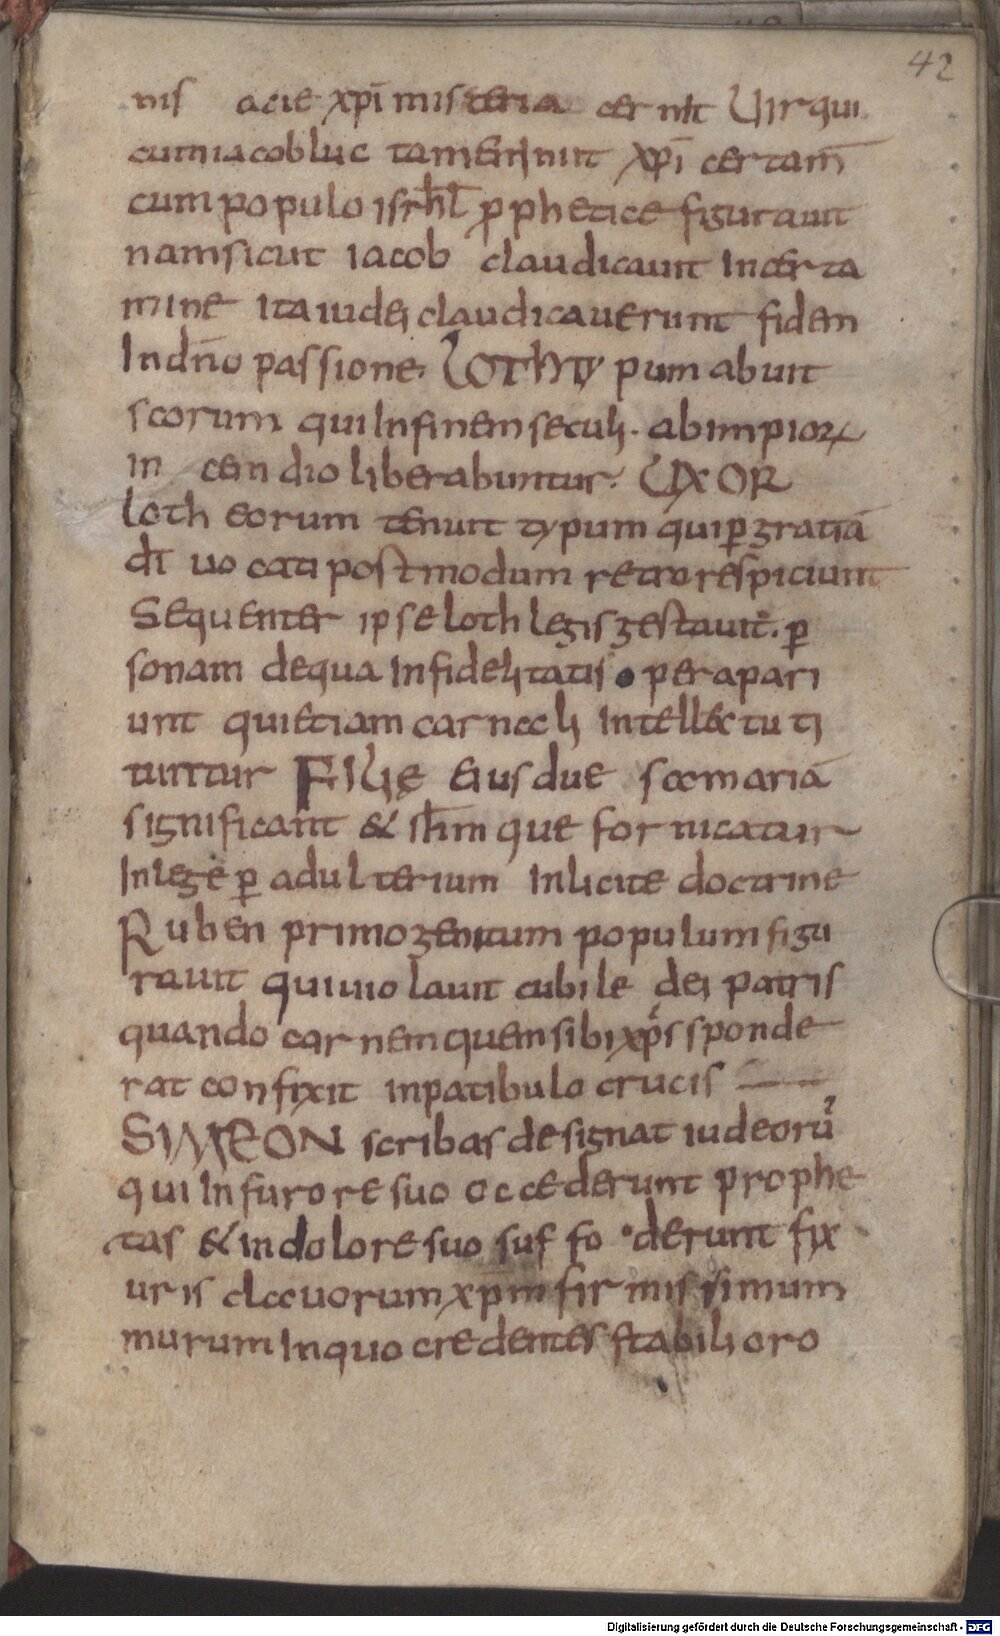 42
nis acie xpī misteria cernit Uir qui
cum iacob luctamen iniit xpī certam̄
cum populo isrhl̄ ꝓphetice figurauit
nam sicut iacob claudicauit in certa
mine ita iudei claudicauerunt fidem
In dn̄o passione. LOTH typum abuit
scorum qui In finem seculi. ab impioꝝ
in cendio liberabuntur. UXOR
loth eorum tenuit typum qui ꝑ gratiā
dī uocati postmodum retro respiciunt
Sequenter ipse loth legis gestauit. ꝑ
sonam de qua Infidelitatis opera pari
unt qui etiam carnali intellectu ti
tuntur FILIE eius due scē mariā
significant & ierl̄m que fornicatur
In lege ꝑ adulterium inlicite doctrine
Ruben primogenitum populum figu
rauit qui uiolauit cubile dei patris
quando carnem quem sibi xp̄s sponde
rat confixit in patibulo crucis
SIMEON scribas designat iudeorū
qui In furore suo occederunt prophe
tas & in dolore suo suffoderunt fix
uris clauorum xpm̄ firmissimum
murum In quo credentes stabili oro
Digitalisierung gefördert durch die Deutsche Forschungsgemeinschaft - DFG